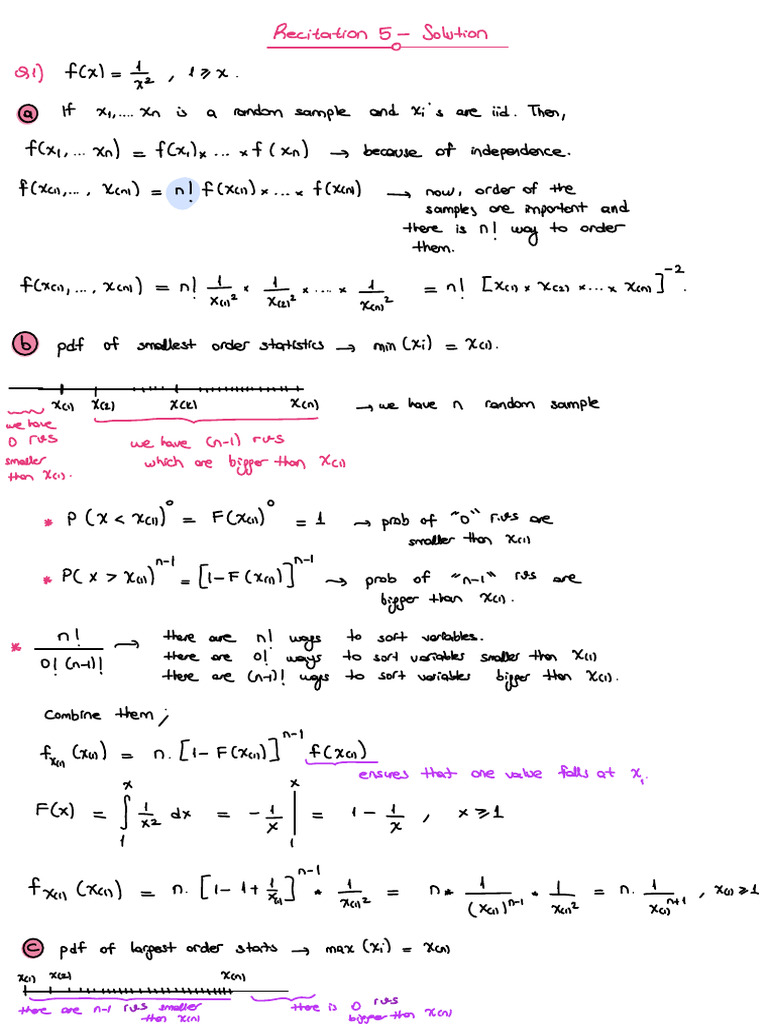 Recitation 5 – Solution
Q1) f(x) = 1/x² , 1 ≥ x .
a) If x₁,.... xₙ is a random sample and xᵢ's are iid. Then,
f(x₁,... xₙ) = f(x₁) × ... × f(xₙ) → because of independence.
f(x₍₁₎,..., x₍ₙ₎) = n! f(x₍₁₎) × ... × f(x₍ₙ₎) → now, order of the
samples are important and
there is n! way to order
them.
f(x₍₁₎,..., x₍ₙ₎) = n! 1/x₍₁₎² × 1/x₍₂₎² × .... × 1/x₍ₙ₎² = n! [x₍₁₎ × x₍₂₎ × ... × x₍ₙ₎]⁻² .
b) pdf of smallest order statistics → min (xᵢ) = x₍₁₎.
x₍₁₎ x₍₂₎ x₍k₎ x₍ₙ₎ → we have n random sample
we have
0 rvs
smaller
than x₍₁₎.
we have (n-1) rvs
which are bigger than x₍₁₎
* P (x < x₍₁₎)⁰ = F(x₍₁₎)⁰ = 1 → prob of "0" rvs are
smaller than x₍₁₎
* P( x > x₍₁₎)ⁿ⁻¹ = [1-F(x₍₁₎)]ⁿ⁻¹ → prob of "n-1" rvs are
bigger than x₍₁₎.
* n! / 0! (n-1)! → there are n! ways to sort variables.
there are 0! ways to sort variables smaller than x₍₁₎
there are (n-1)! ways to sort variables bigger than x₍₁₎.
Combine them;
f_x₍₁₎ (x₍₁₎) = n. [1-F(x₍₁₎)]ⁿ⁻¹ f(x₍₁₎)
ensures that one value falls at x₁.
F(x) = ∫₁ˣ 1/x2 dx = -1/x |₁ˣ = 1 - 1/x , x ≥ 1
f_x₍₁₎ (x₍₁₎) = n. [1-1+1/x₍₁₎]ⁿ⁻¹ * 1/x₍₁₎² = n * 1/(x₍₁₎)ⁿ⁻¹ * 1/x₍₁₎² = n. 1/x₍₁₎ⁿ⁺¹ , x₍₁₎ ≥ 1
c) pdf of largest order starts → max (xᵢ) = x₍ₙ₎
x₍₁₎ x₍₂₎ x₍ₙ₎
there are n-1 rvs smaller
than x₍ₙ₎
there is 0 rvs
bigger than x₍ₙ₎